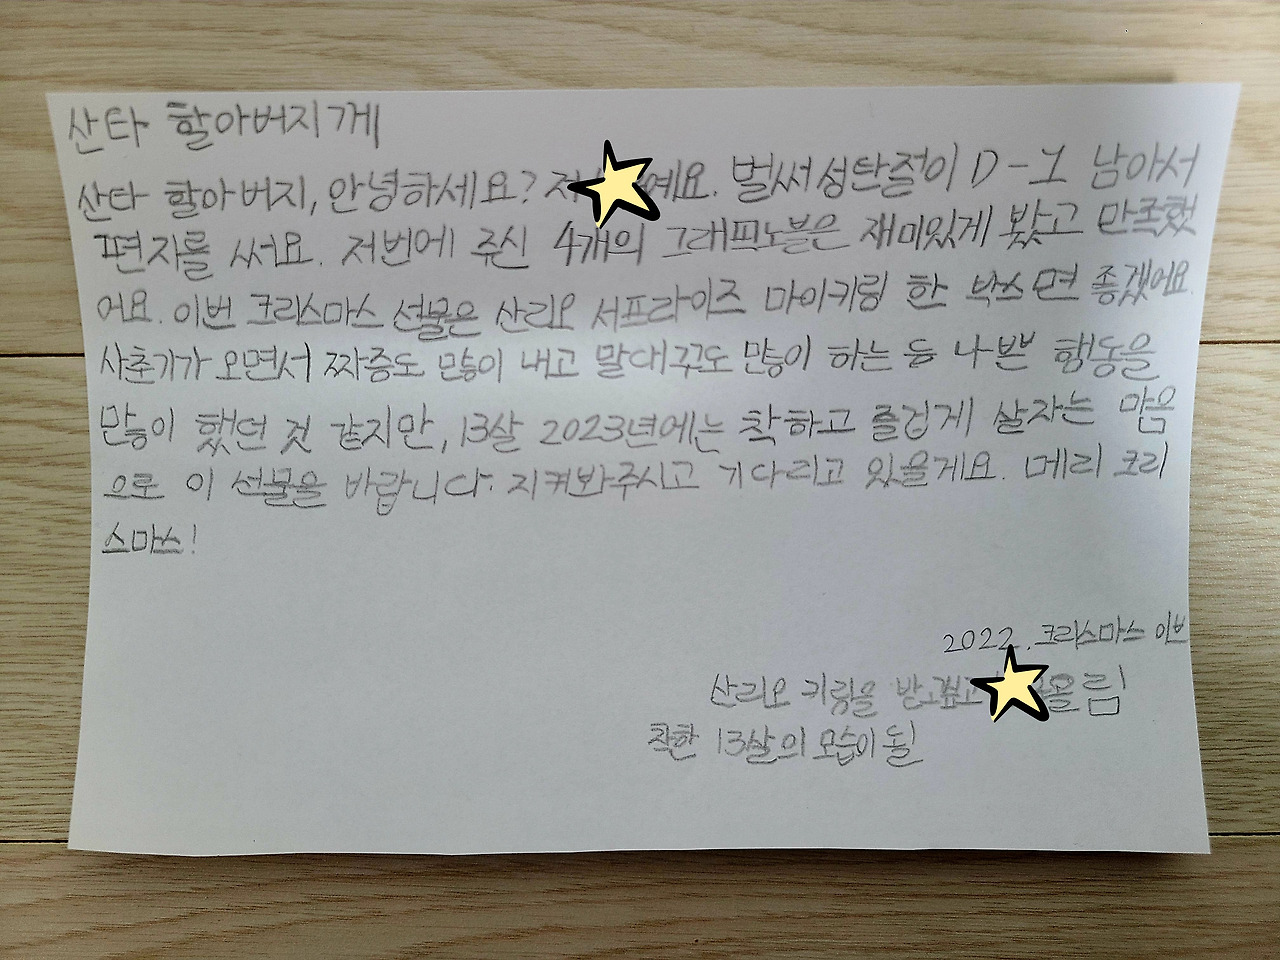 산타 할아버지께
산타 할아버지, 안녕하세요? 저 예요. 벌써 성탄절이 D-1 남아서
편지를 써요. 저번에 주신 4개의 그래픽노블은 재미있게 봤고 만족했
어요. 이번 크리스마스 선물은 산리오 서프라이즈 마이키링 한 박스면 좋겠어요.
사춘기가 오면서 짜증도 많이 내고 말대꾸도 많이 하는 등 나쁜 행동을
많이 했던 것 같지만, 13살 2023년에는 착하고 즐겁게 살자는 마음
으로 이 선물을 바랍니다. 지켜봐주시고 기다리고 있을게요. 메리 크리
스마스!
2022. 크리스마스 이브
산리오 키링을 받고싶고 올림
착한 13살의 모습이 될